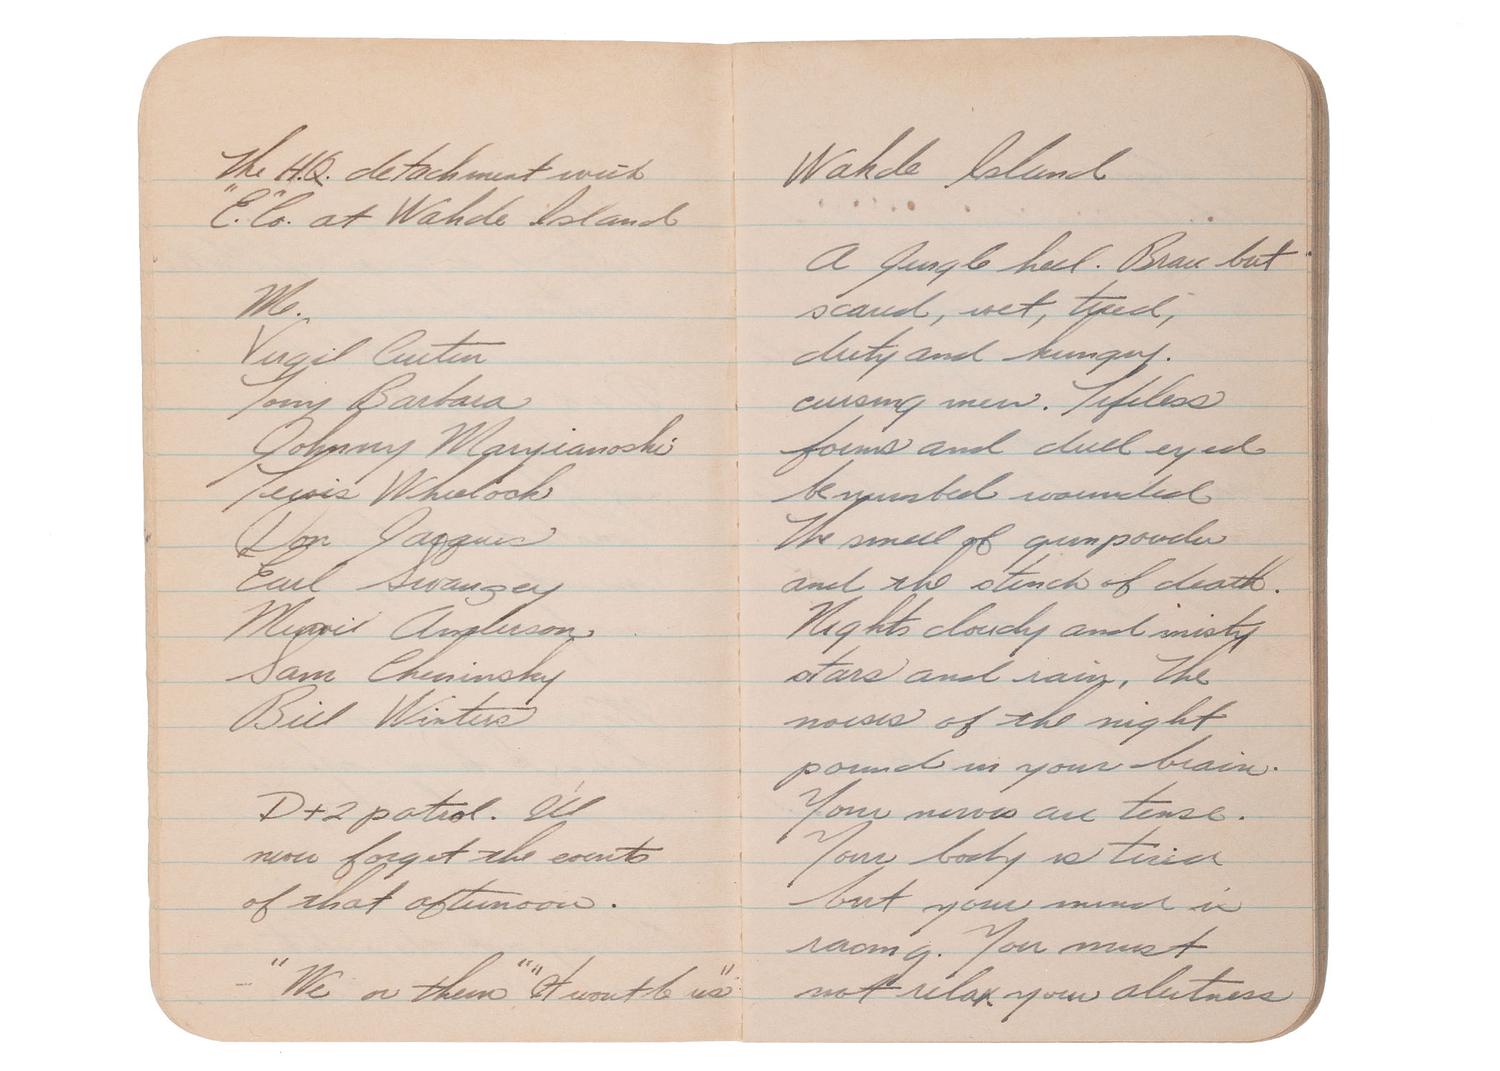 The H.Q. detachment with
"E." Co. at Wahde Island
Me.
Virgil
Tony Barbara
Johnny
Lewis Wheelock
Don Jacques
Earl Swanzey
Anderson
Sam Cheninsky
Bill Winters
D+2 patrol. I'll
never forget the events
of that afternoon.
"We or them" "It wont be us"
Wahde Island
A Jungle hell. Brave but
scared, wet, tired,
dirty and hungry.
cursing men. Lifeless
forms and dull eyed
benumbed wounded
The smell of gunpowder
and the stench of death.
Nights cloudy and misty
stars and rain. The
noises of the night
pound in your brain.
Your nerves are tense.
Your body is tired
but your mind is
racing. You must
not relax your alertness